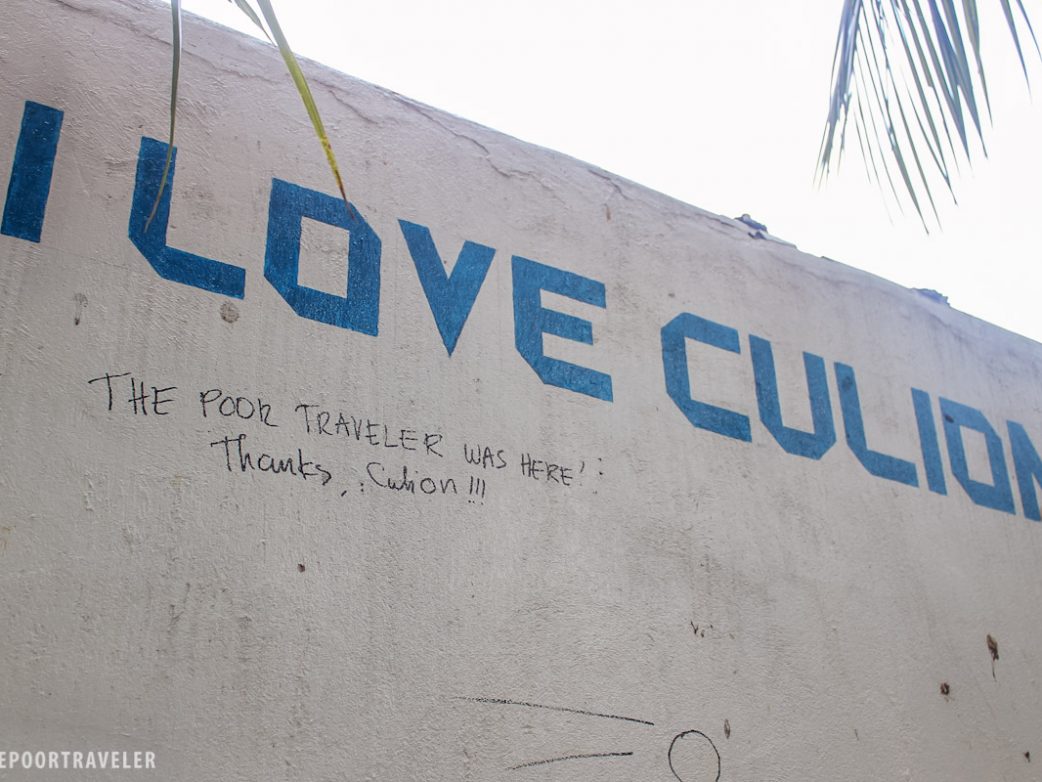 I LOVE CULION
THE POOR TRAVELER WAS HERE!
Thanks, Culion!!!
EPOORTRAVELER